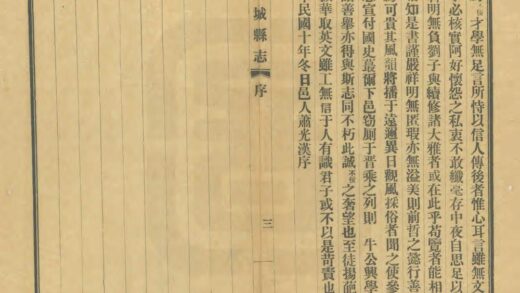 才學無足言所恃以信人傳後者惟心耳言雖無文
必核實阿好懷怨之私衷不敢纖毫存中夜自思足以
明無負劉子與續修諸大雅者或在此乎苟覽者能相
知是書謹嚴祥明無匿瑕亦無溢美則前哲之懿行善
可貴其風韻將播于遠邇異日觀風採俗者聞之使參
宣付國史蕞爾下邑窃厠于晋乘之列則 牛公興學
善舉亦得與斯志同不朽此誠不佞之奢望也至徒揚葩
華取英文雖工無信于人有識君子或不以是苛責也
民國十年冬日邑人蕭光漢序
城縣志 序 三